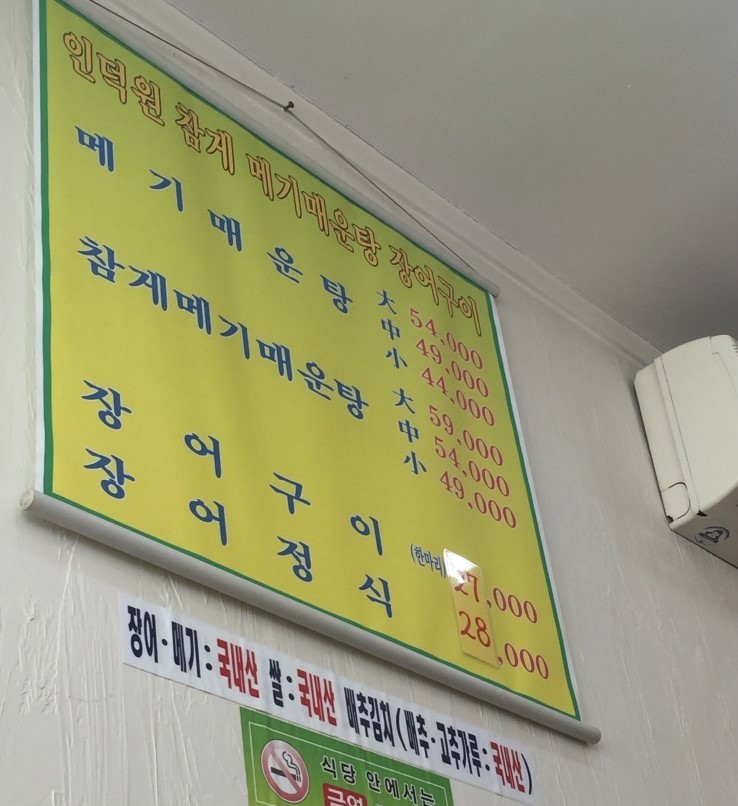 인덕원 참게 메기매운탕 장어구이
메기매운탕 大 54,000
中 49,000
小 44,000
참게메기매운탕 大 59,000
中 54,000
小 49,000
장어구이 (한마리) 27,000
장어정식 28,000
장어·메기 : 국내산 쌀 : 국내산 배추김치 ( 배추·고추가루 : 국내산 )
식당 안에서는
금연